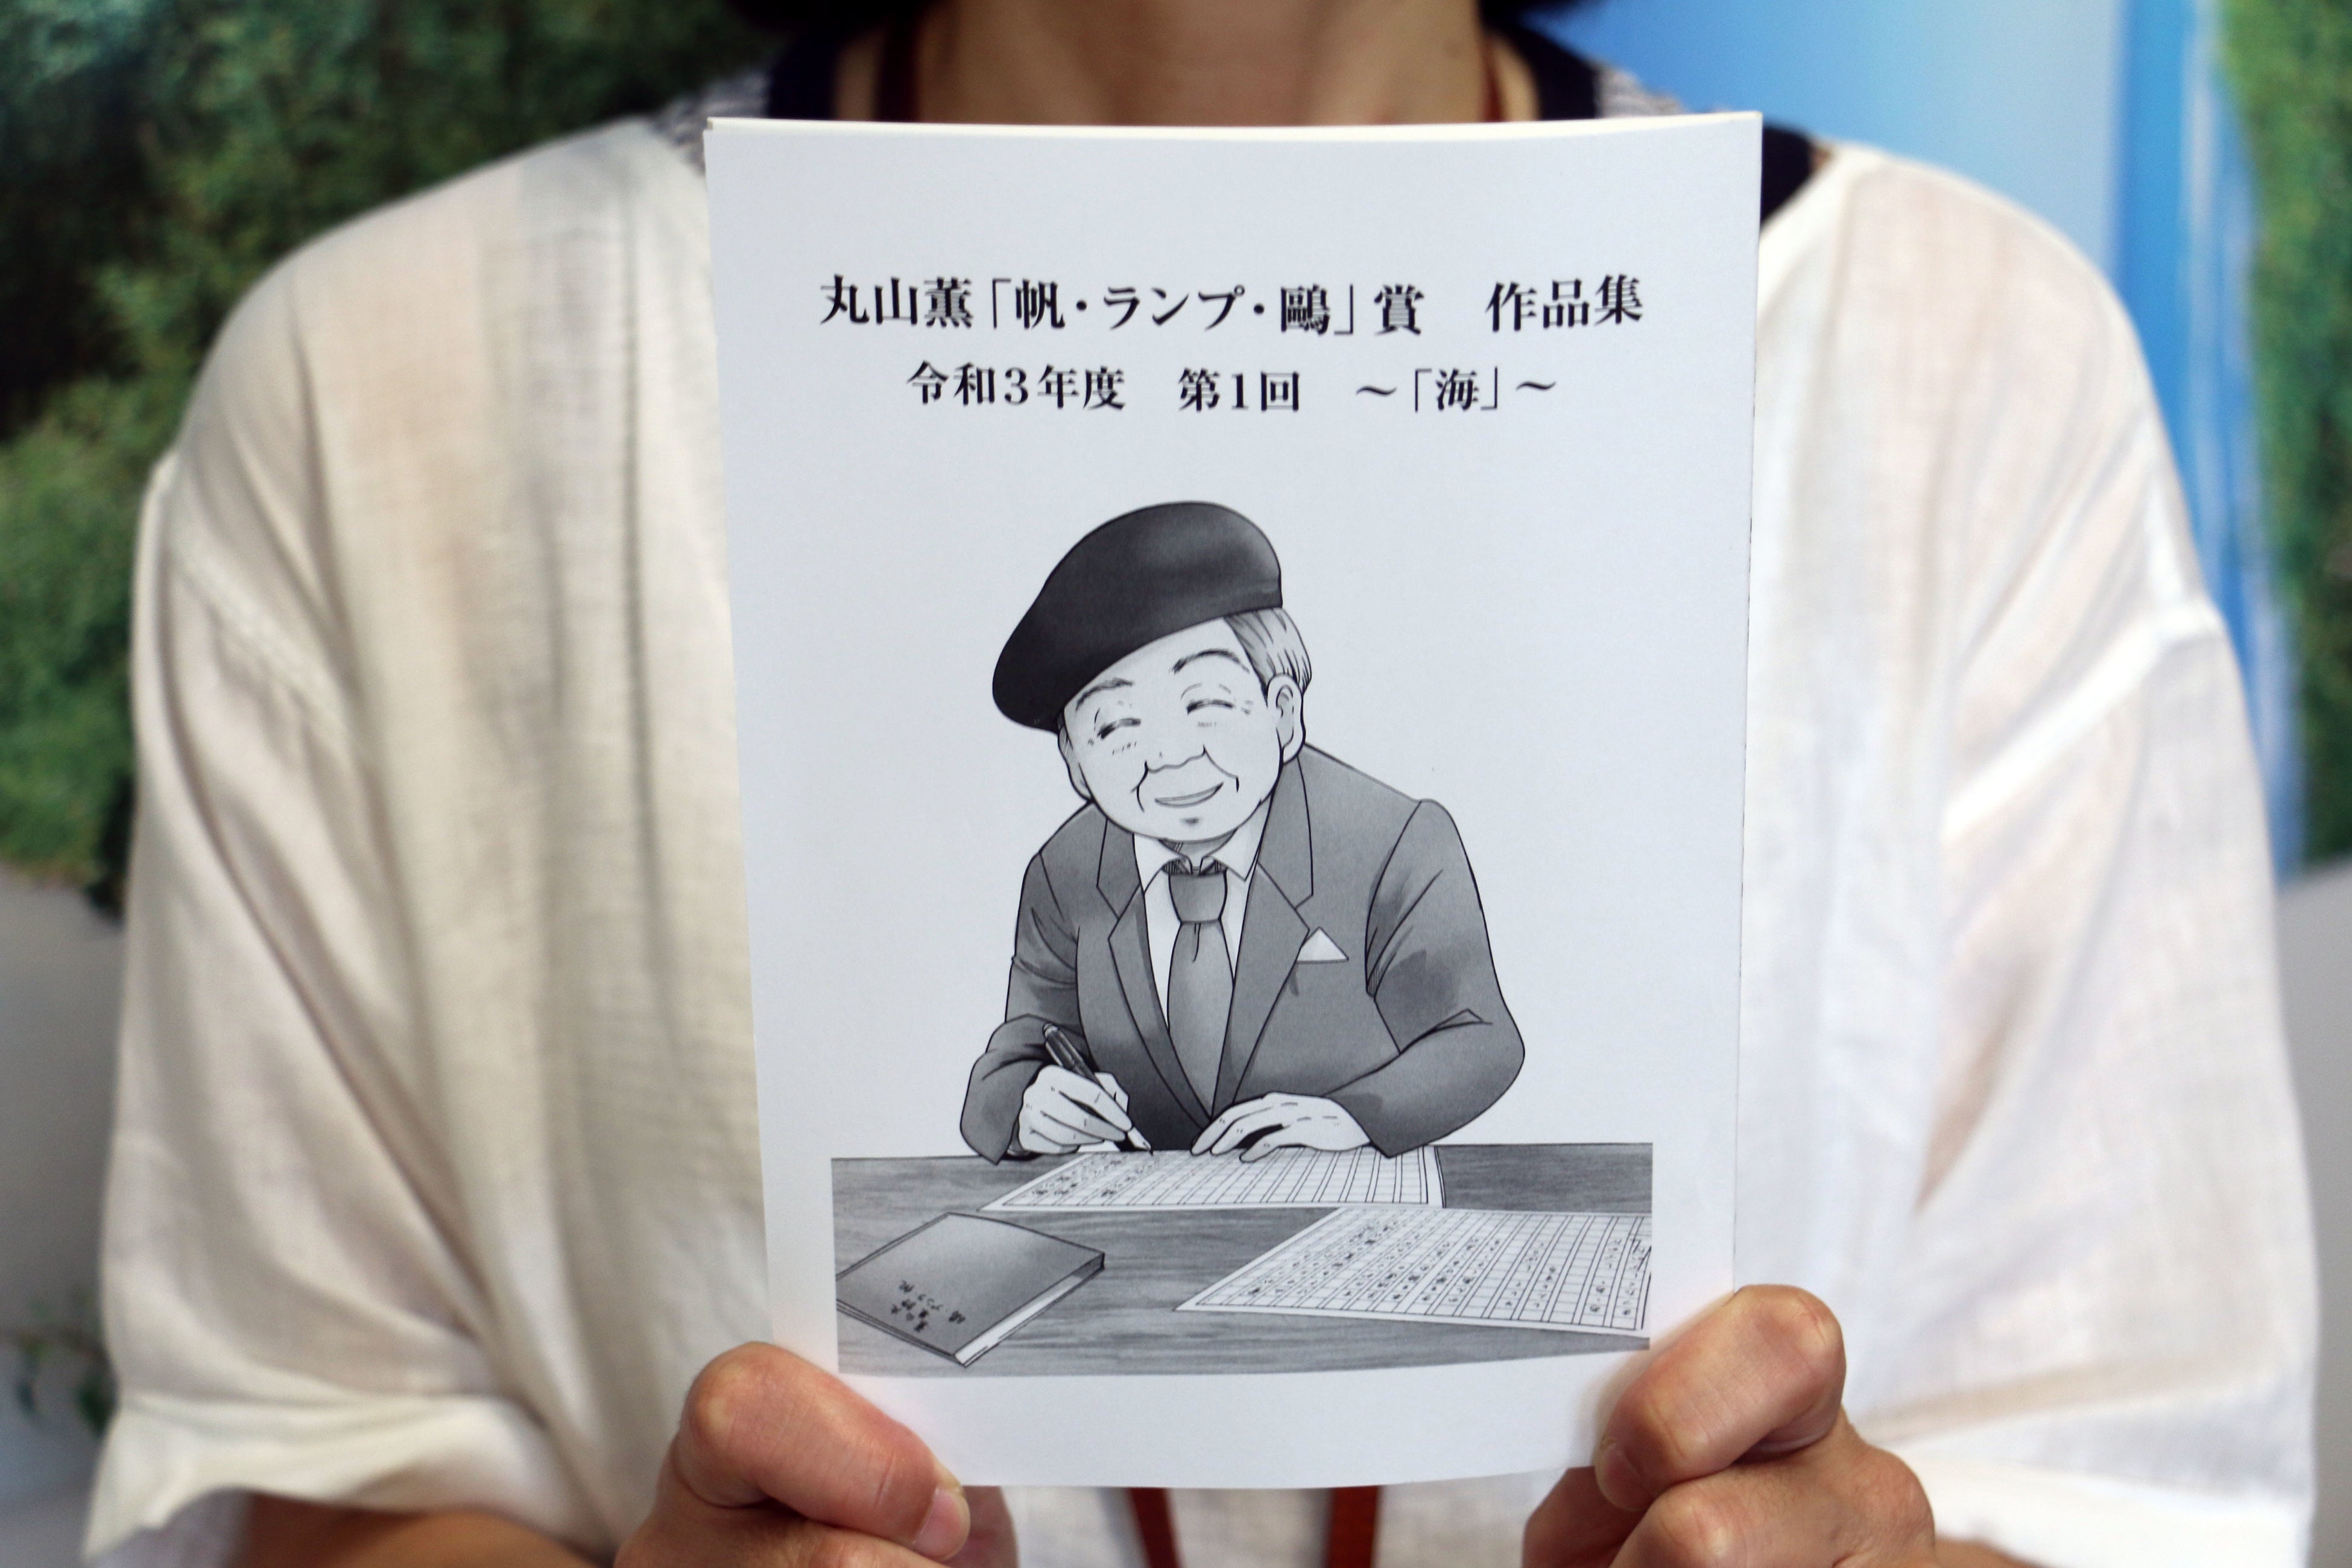 丸山薫「帆・ランプ・鷗」賞　作品集
令和3年度　第1回　～「海」～